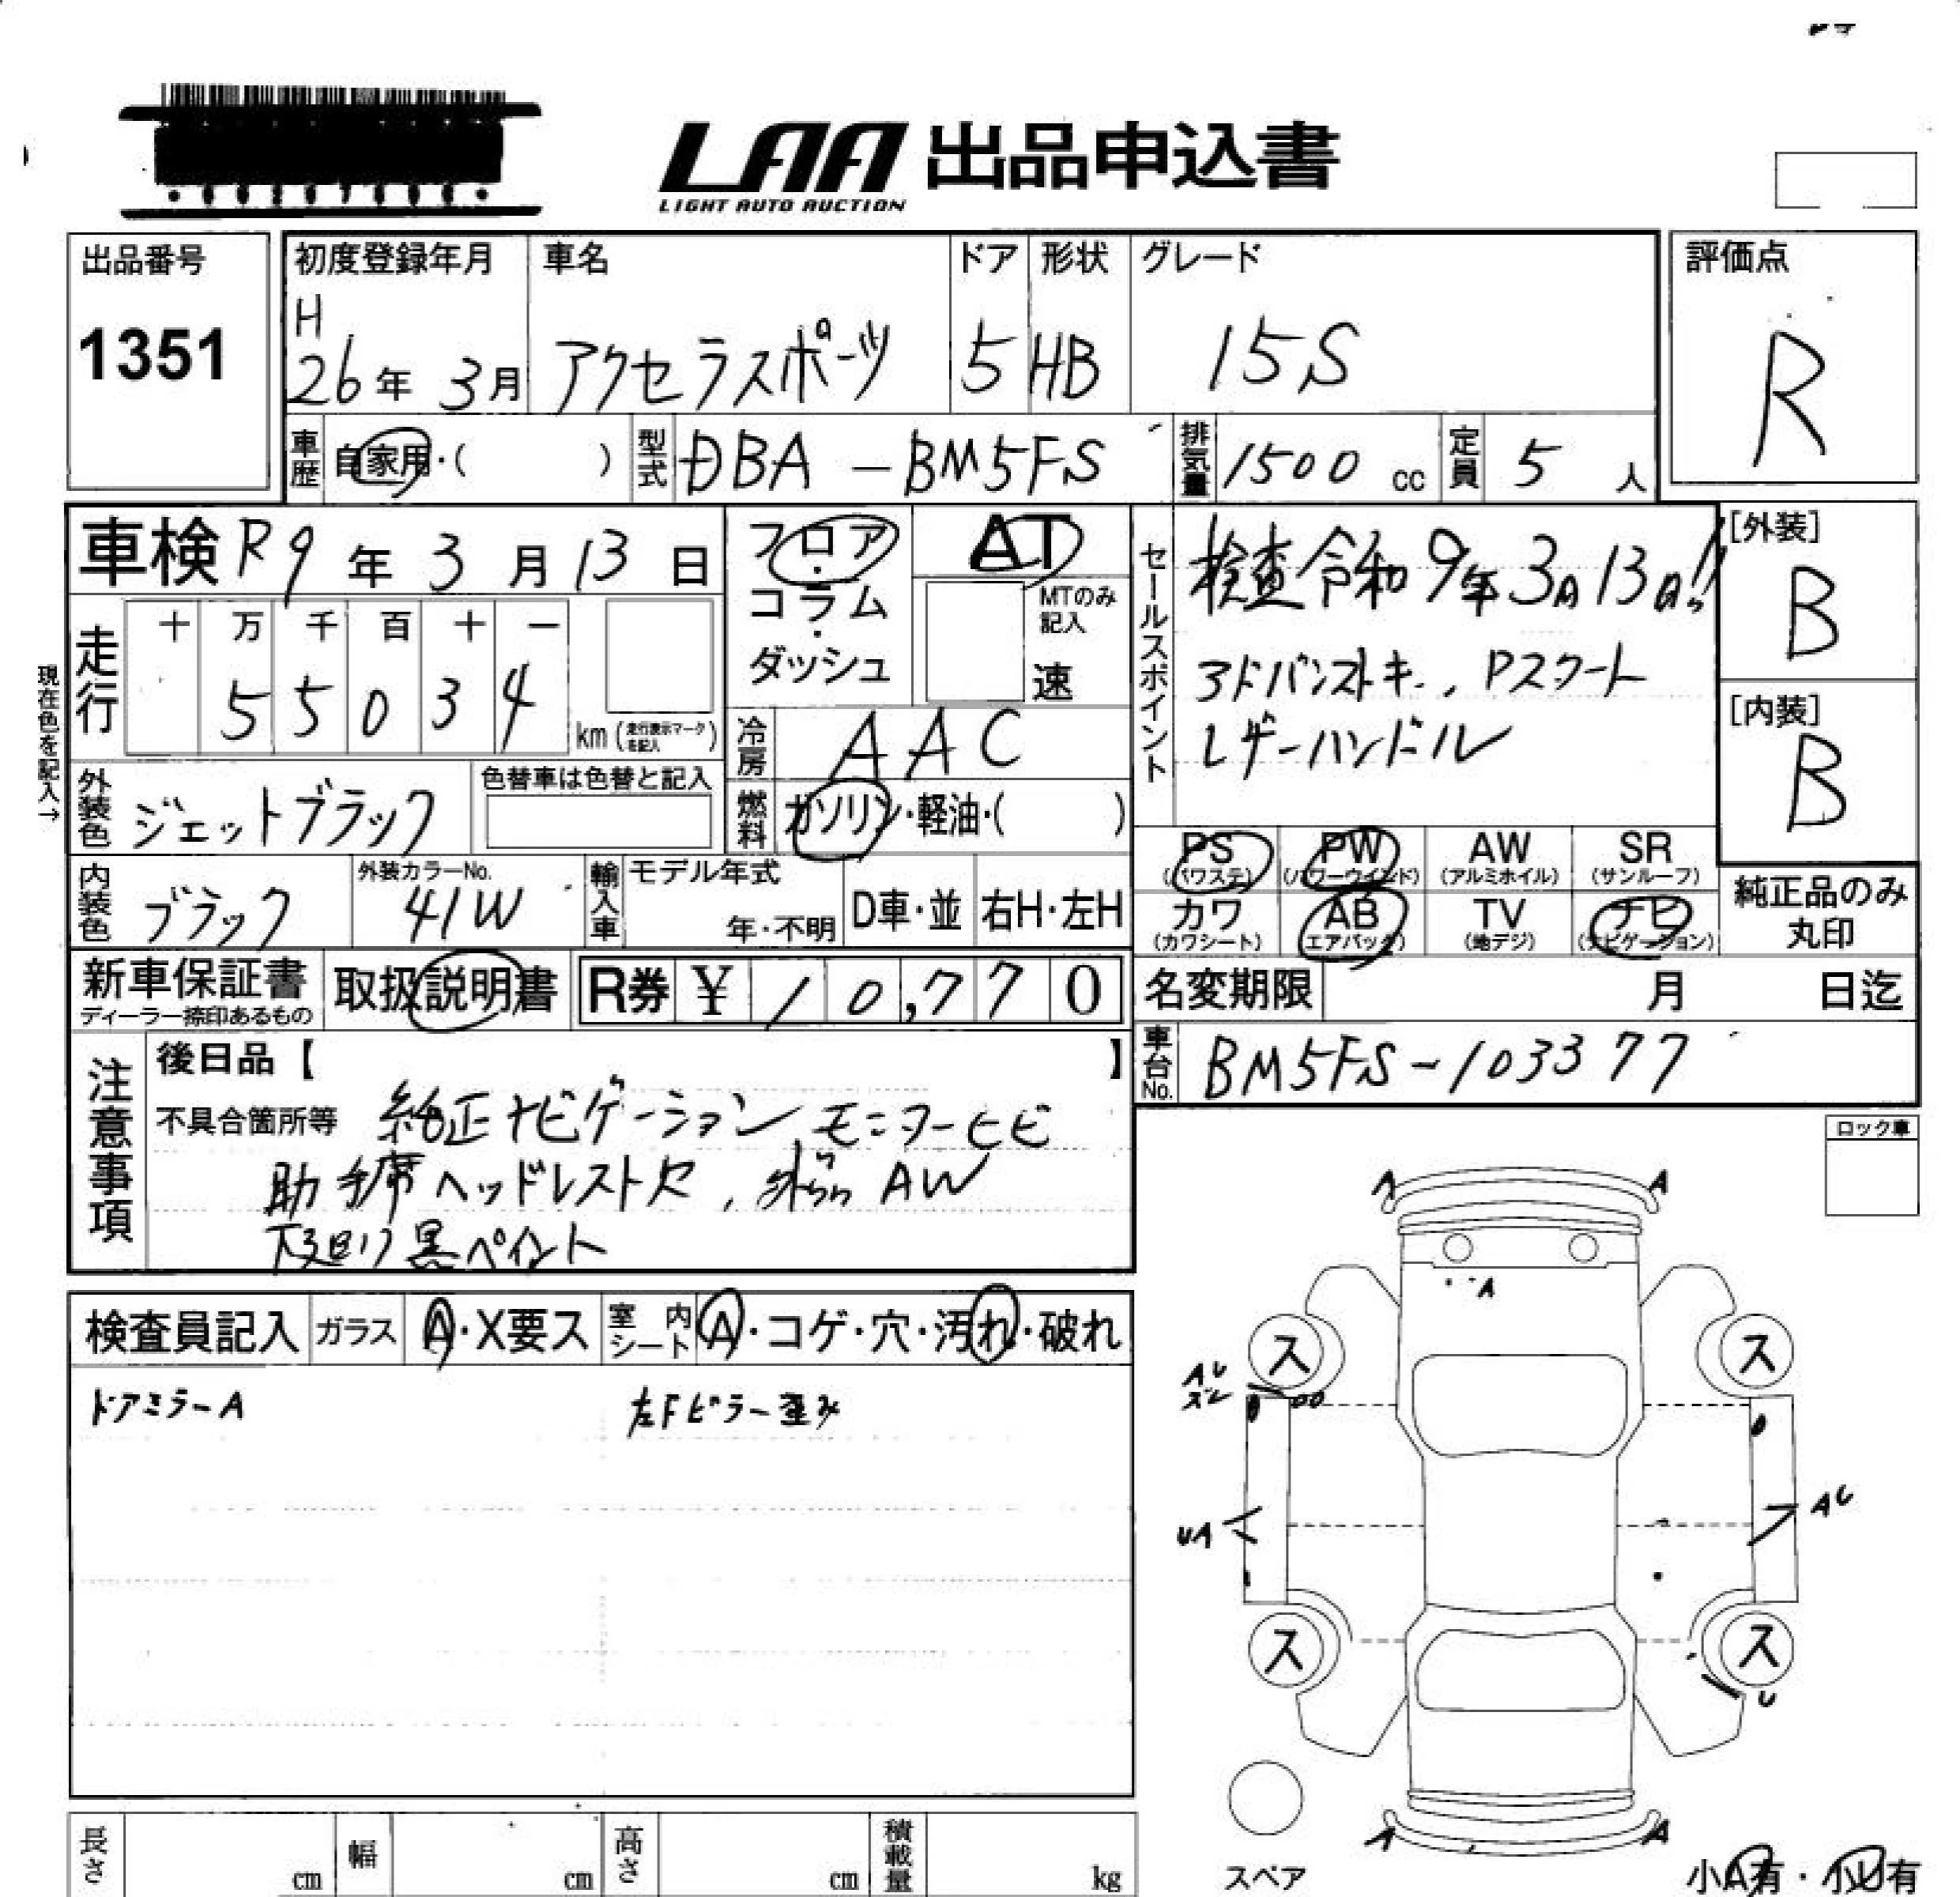 LAA 出品申込書
LIGHT AUTO AUCTION
出品番号
1351
初度登録年月
H
26年 3月
車名
アクセラスポーツ
ドア
5
形状
HB
グレード
15S
評価点
R
車歴 自家用・( )
型式 DBA-BM5FS
排気量 1500 cc
定員 5 人
車検 R9年 3月 13日
フロア・コラム・ダッシュ
AT
MTのみ記入
速
走行
十 万 千 百 十 一
5 5 0 3 4
km(走行表示マークを記入)
現在色を記入→
冷房 AAC
燃料 ガソリン・軽油・( )
外装色 ジェットブラック
色替車は色替と記入
内装色 ブラック
外装カラーNo.
41W
輸入車
モデル年式
年・不明
D車・並
右H・左H
セールスポイント
検査令和9年3月13日!!
アドバンストキー、Pスタート
レザーハンドル
[外装]
B
[内装]
B
PS (パワステ)
PW (パワーウインド)
AW (アルミホイル)
SR (サンルーフ)
カワ (カワシート)
AB (エアバック)
TV (地デジ)
ナビ (ナビゲーション)
純正品のみ丸印
新車保証書
ディーラー捺印あるもの
取扱説明書
R券 ¥ 10,770
名変期限 月 日迄
車台No. BM5FS-103377
注意事項
後日品【 】
不具合箇所等 純正ナビゲーション、モニターヒビ
助手席ヘッドレスト欠、
AW
黒ペイント
ロック車
検査員記入
ガラス A・X要ス
室内シート A・コゲ・穴・汚れ・破れ
ドアミラーA
左Fピラー歪み
A A
A
ス ス
AU
ズレ
UA
AU
ス ス
U
A A
スペア
小A有・小U有
長さ cm
幅 cm
高さ cm
積載量 kg